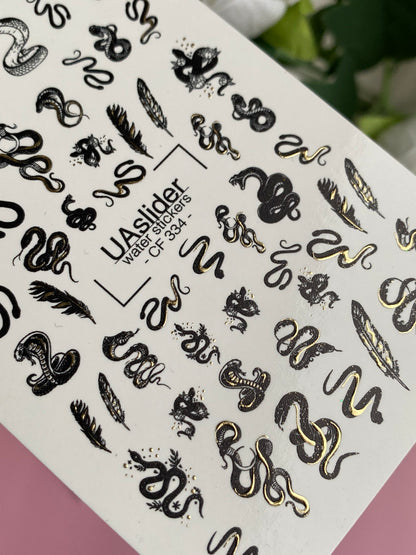 UAslider
water stickers
- CF 334 -